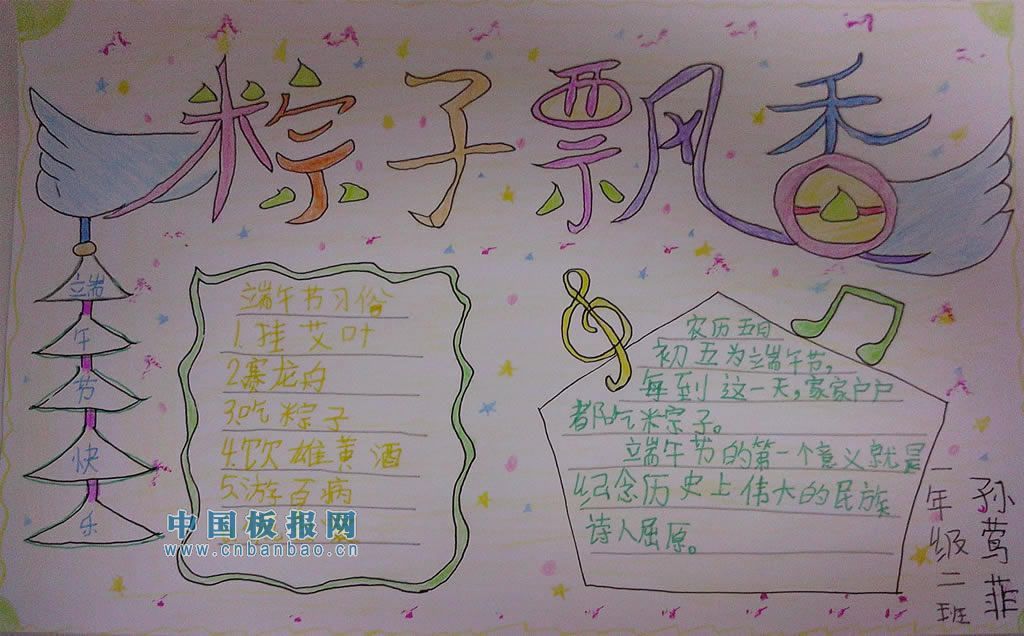 粽子飘香
端午节快乐
端午节习俗
1.挂艾叶
2.赛龙舟
3.吃粽子
4.饮雄黄酒
5.游百病
中国板报网
www.cnbanbao.cn
农历五日
初五为端午节,
每到这一天,家家户户
都吃粽子。
端午节的第一个意义就是
纪念历史上伟大的民族
诗人屈原。
一年级二班
孙莺菲